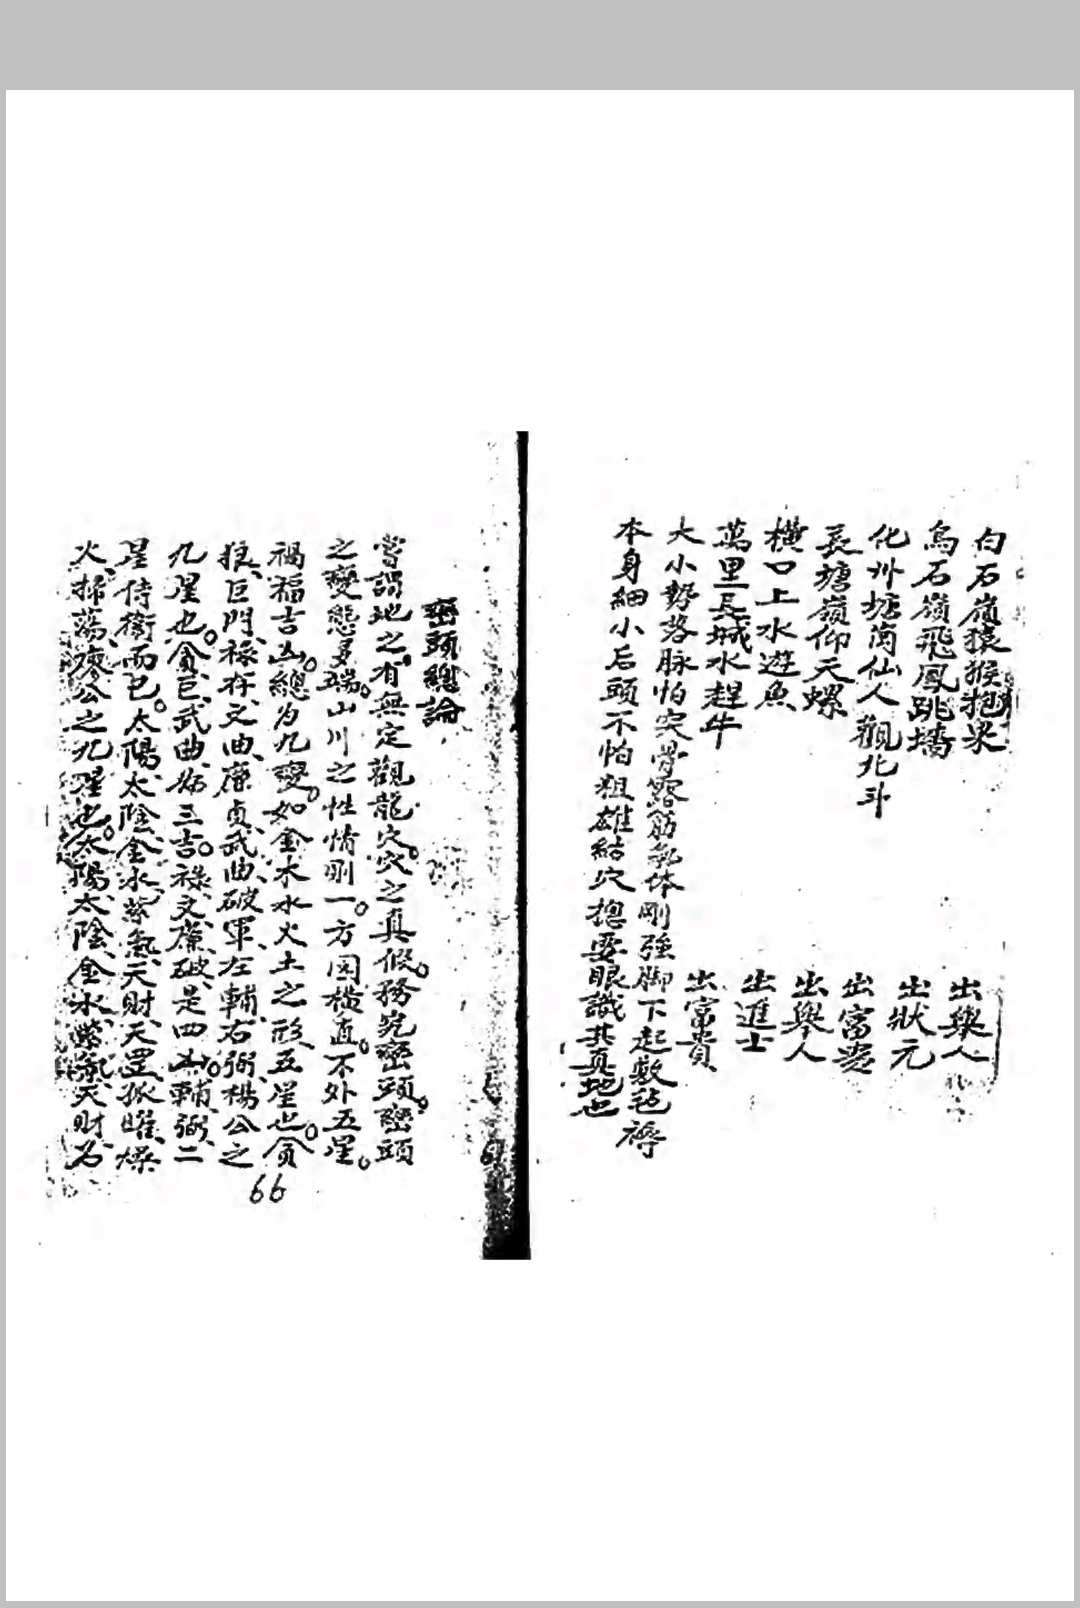 白石嶺猿猴抱果 出舉人
烏石嶺飛鳳跳墻 出狀元
化州塘茵仙人觀北斗 出富貴
長塘嶺仰天螺 出舉人
橫口上水遊魚 出進士
萬里長城水趕牛 出富貴
大小勢落脉怕突骨露筋氣体剛強脚下起敷毡褥
本身細小后頭不怕粗雄結穴揔要眼識其真地也
巒頭總論
嘗謂地之有無定觀龍穴。穴之真假。務究巒頭。巒頭
之變態多端。山川之性情剛一。方圆橫直。不外五星。
禍福吉凶。總为九變。如金木水火土之形五星也。貪
狼、巨門、祿存、文曲、廉貞、武曲、破軍、左輔、右弼、楊公之
九星也。貪、巨、武曲、為三吉。祿、文、廉、破、是四凶。輔、弼、二
星侍衛而已。太陽、太陰、金水、紫氣、天財、天罡、孤曜、燥
火、掃蕩、廖公之九星也。太陽、太陰、金水、紫氣、天財、名
66